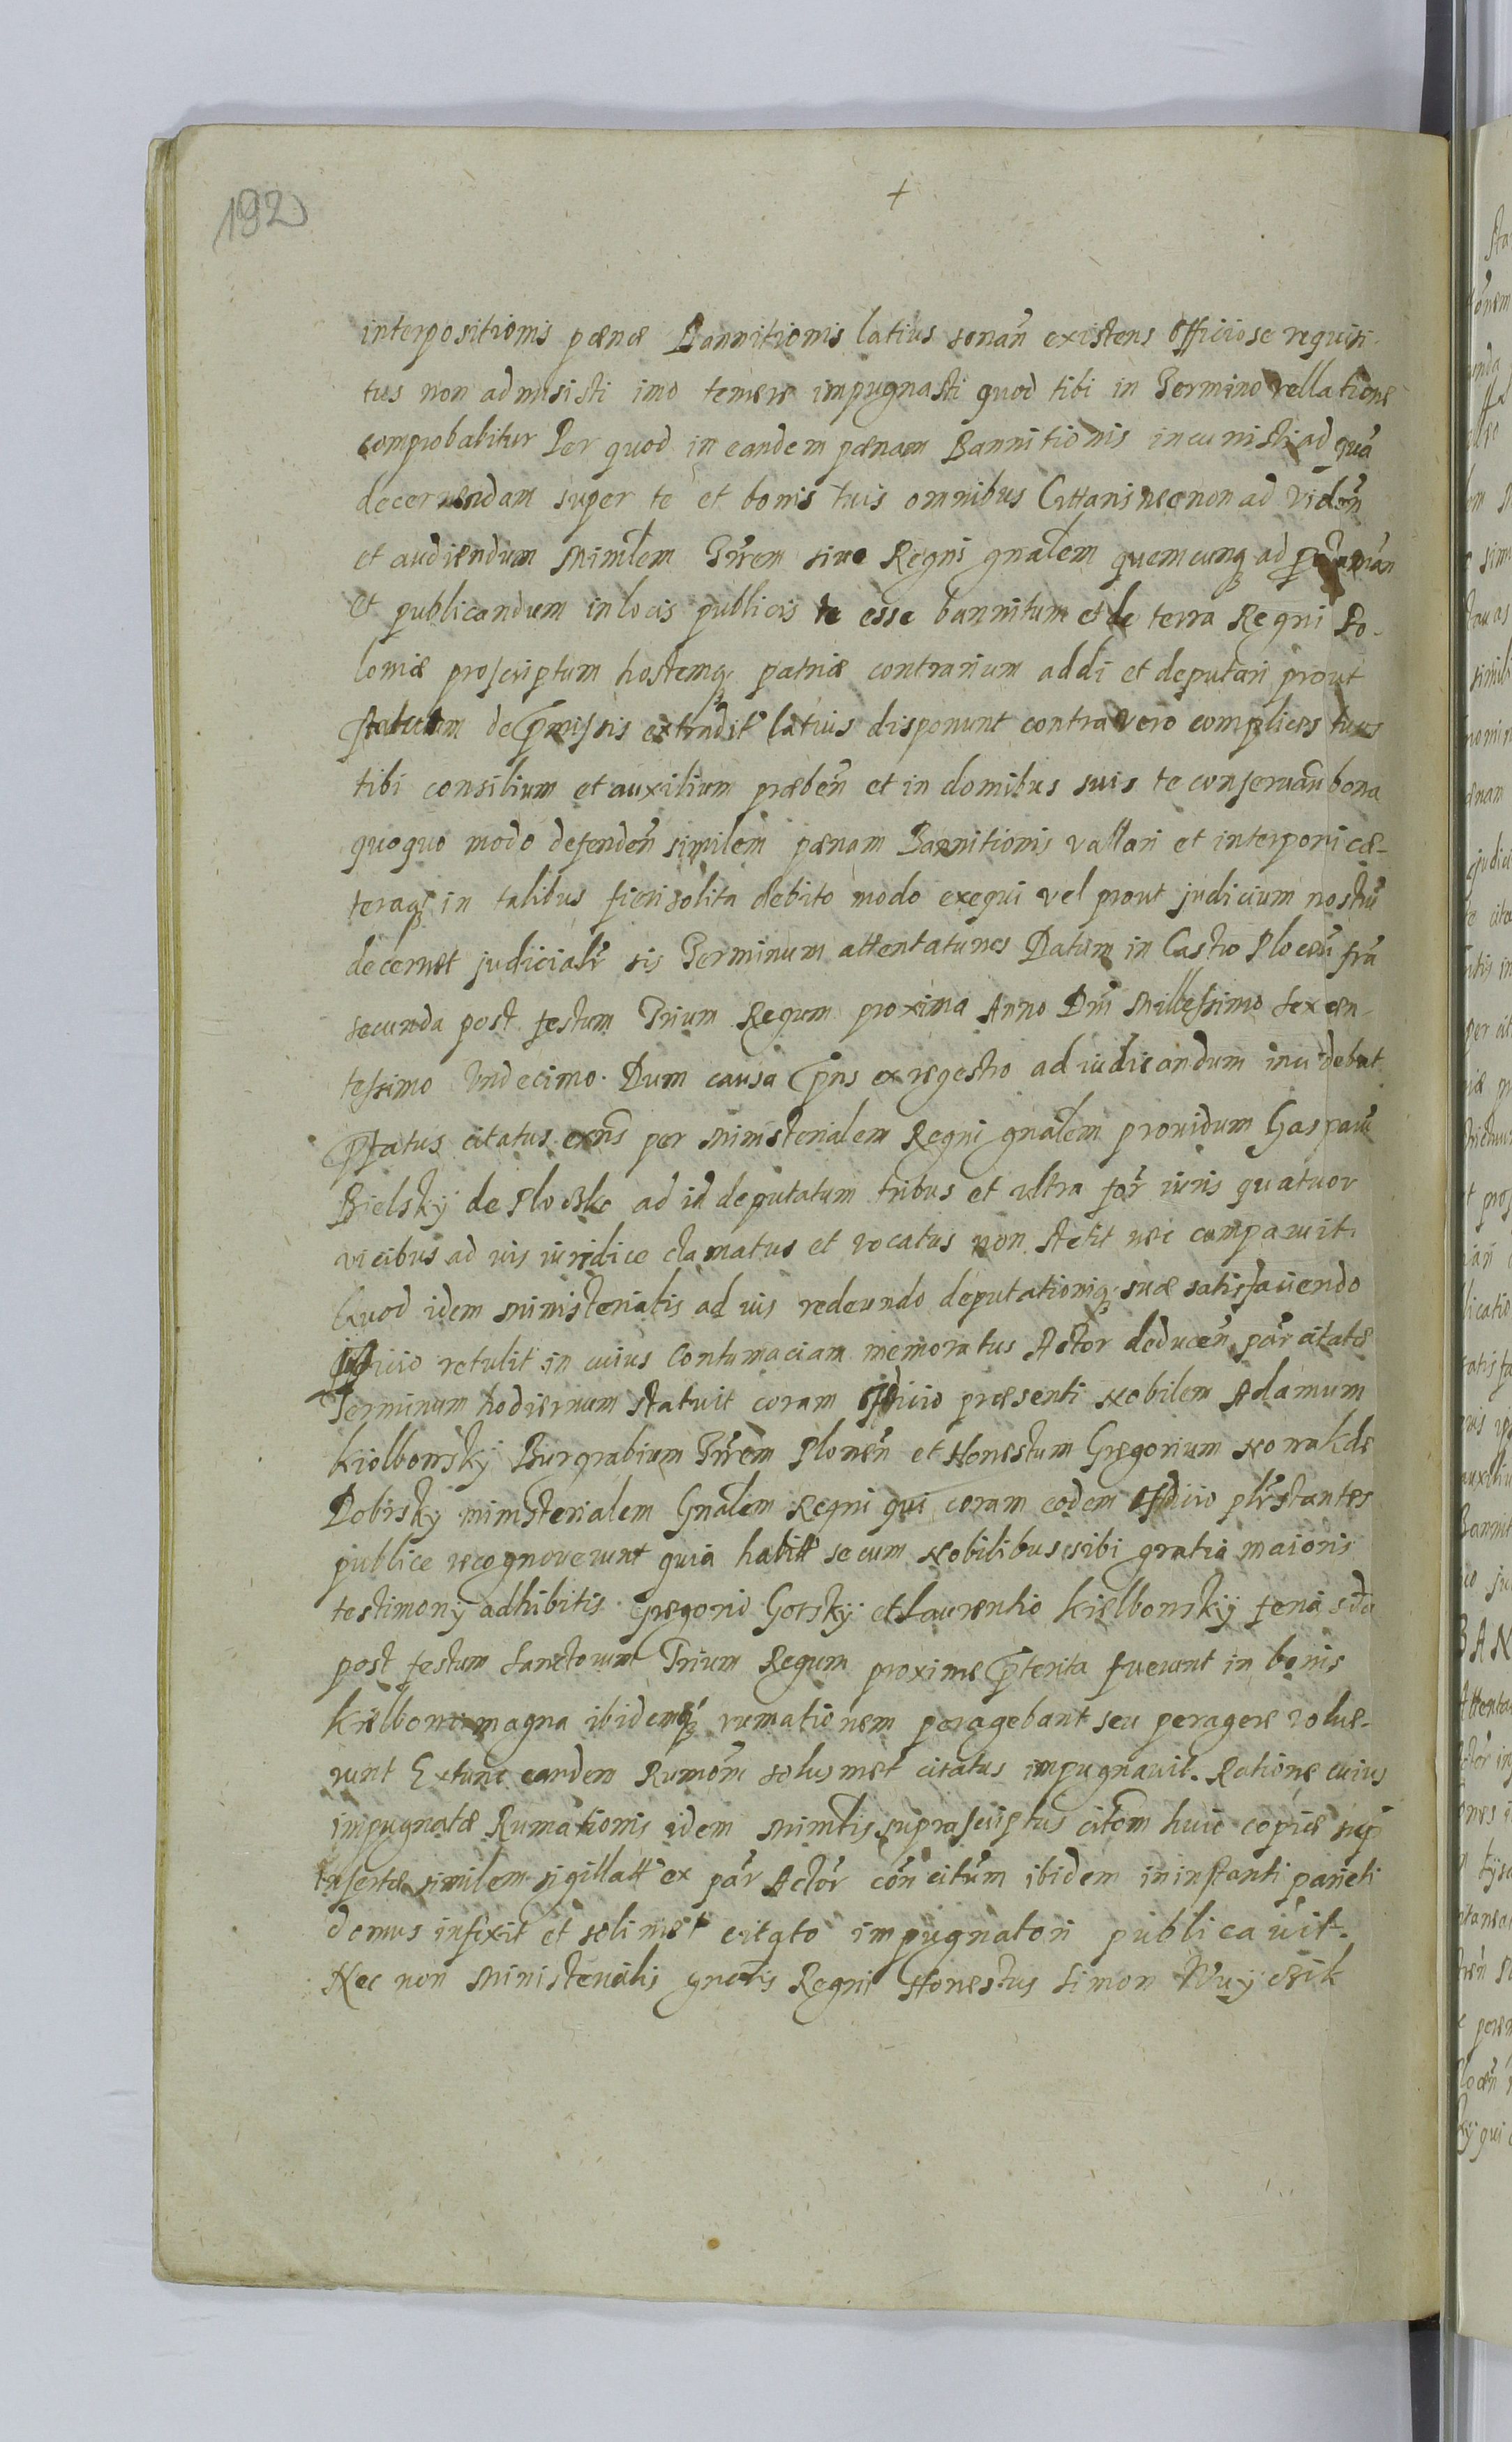 192
+
interpositionis pænæ Bannitionis latius sonañ existens Officiose requisi-
tus non admisisti imo temere impugnasti quod tibi in Termino rellatione
comprobabitur Per quod in eandem pænam Bannitionis incuristi ad quã
decernendam super te et bonis tuis omnibus Cittaris necnon ad Videñ
et audiendum Minlem Trrem siue Regni gnalem quemcunq ad
et publicandum in locis publicis te esse bannitum et de terra Regni Po-
loniæ proscriptum hostemq patriæ contrarium addi et deputari prout
statutum de præmissis latius disponunt contra vero complices tuos
tibi consilium et auxilium præbeñ et in domibus suis te conseruañ bona
quoquo modo defendeñ similem pænam Bannitionis vallari et interponi cæ-
teraq in talibus fieri solita debito modo exequi vel prout judicium nostrũ
decernet judicialr sis Terminum attentaturus Datum in Castro Plocen̄ fra
secunda post festum Trium Regum proxima Anno Dni Millessimo sexcen-
tessimo Vndecimo. Dum causa pns ex regestro ad iudicandum incidebat
Pfatus citatus exns per Ministerialem Regni gnalem prouidum Gasparũ
Bielskÿ de Plonsko ad id deputatum tribus et vltra for iuris quatuor
vicibus ad ius iuridice clamatus et vocatus non stetit nec comparuit.
Quod idem Ministerialis ad ius redeundo deputationiq suæ satisfaciendo
Officio retulit in cuius Contumaciam memoratus Actor deduceñ par citatæ
Terminum hodiernum statuit coram Officio præsenti Nobilem Adamum
Kiolbonskÿ Burgrabium Trrem Ploneñ et Honestum Gregorium Nowak de
Dobisky ministerialem Gnalem Regni qui coram eodem Officio plrstantes
publice recognouerunt quia habitt secum Nobilibus sibi gratia maioris
testimonÿ adhibitis Gregorio Gorskÿ et Laurentio Kielbonskÿ feria sda
post festum Sanctorum Trium Regum proxime pterita fuerunt in bonis
Kielbonomagna ibidemq rumationem peragebant seu peragere volue-
runt Extunc eandem Rumõm solusmet citatus impugnauit. Ratione cuius
impugnatæ Rumationis idem Minlis suprascriptus citõm huic copiæ sup
insertæ similem sigillatt ex par Actor cõñ citum ibidem in instanti parieti
domus infixit et solimet citato impugnatori publicauit.
Nec non Ministerialis gnalis Regni Honestus Simon Wuÿcik